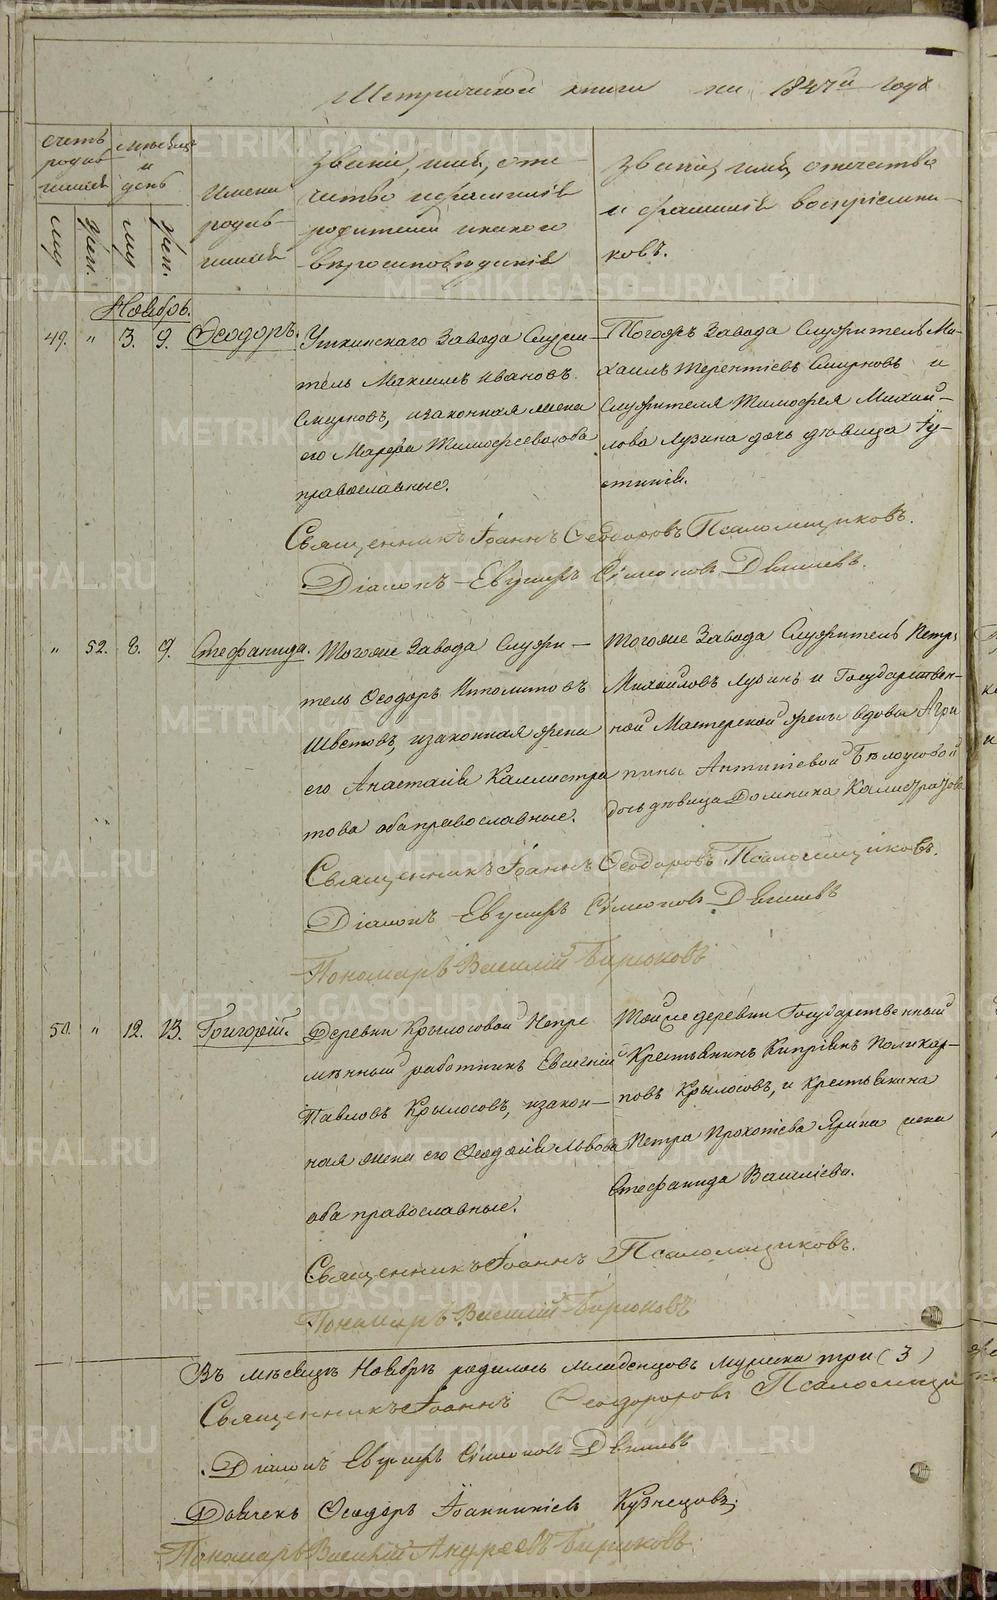 METRIKI.GASO-URAL.RU
Метрической книги на 1847й года
Счетъ родив-шихся
Мѣсяцъ и день
Имена родив-шихся
Званіе, имя, оте-
чество и фамилія
родителей и какого
вѣроисповѣданія
Званіе, имя, отечество
и фамилія воспріемни-
ковъ.
муж. жен. му кре.
Ноябрь.
49. " 3. 9. Ѳеодоръ.
Уткинскаго Завода Служи-
тель Михаилъ Ивановъ
Смирновъ, и законная жена
его Марѳа Тимоѳеева оба
православные.
Тогожъ Завода Служитель Ми-
хаилъ Терентіевъ Смирновъ и
Служителя Тимоѳея Михай-
лова Лузина дочь дѣвица Іу-
стинія.
Священникъ Іоаннъ Ѳеодоровъ Псаломщиковъ.
Діаконъ Евѳимъ Сімеоновъ
" 52. 8. 9. Стефанида.
Тогоже Завода Служи-
тель Ѳеодоръ Ипполитовъ
Швецовъ, и законная жена
его Анастасія Каллистра
това оба православные.
Тогоже Завода Служитель Петръ
Михайловъ Лузинъ и Государствен-
ной Мастерской жены вдовы Агри
пины Антипіевой Бѣлоусовой
дочь дѣвица Домника Калистратова
Священникъ Іоаннъ Ѳеодоровъ Псаломщиковъ.
Діаконъ Евѳимъ Сімеоновъ
Пономарь Василій Бирюковъ
50. " 12. 13. Григорій.
Деревни Крылосовой Непре
мѣнный работникъ Евгеній
Павловъ Крылосовъ, и закон-
ная жена его Ѳеодосія Львова
оба православные.
Тойже деревни Государственный
Крестьянинъ Кипріанъ Поликар-
повъ Крылосовъ, и крестьянина
Петра Прокопіева Ярина жена
Стефанида Василіева.
Священникъ Іоаннъ Псаломщиковъ.
Пономарь Василій Бирюковъ
Въ мѣсяцѣ Ноябрѣ родилось младенцовъ мужеска три (3)
Священникъ Іоаннъ Ѳеодоровъ Псаломщи
Діаконъ Евѳимъ Сімеоновъ
Дьячекъ Ѳеодоръ Іоанникіевъ Кузнецовъ
Пономарь Василій Андреевъ Бирюковъ